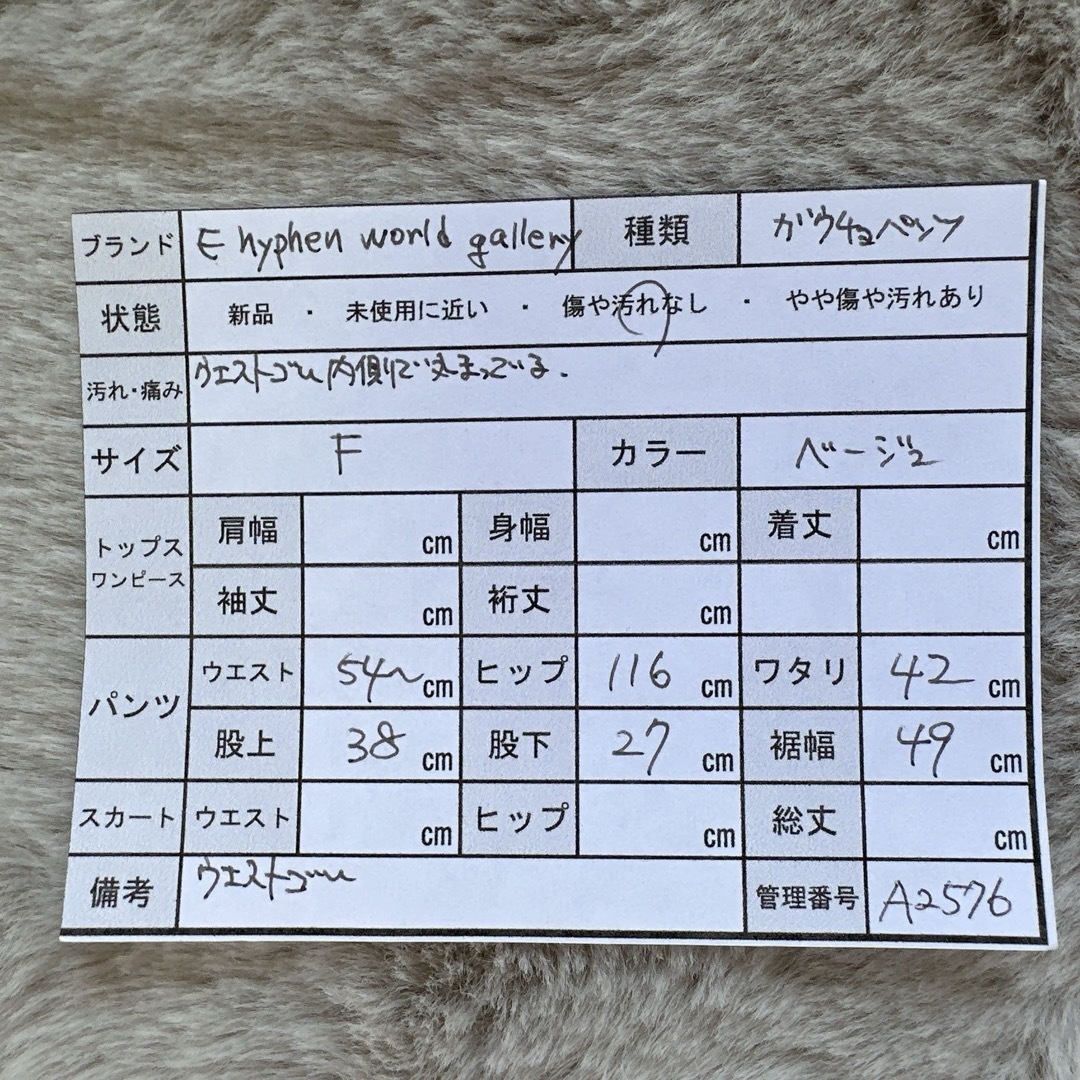 ブランド E hyphen world gallery 種類 ガウチョパンツ
状態 新品 ・ 未使用に近い ・ 傷や汚れなし ・ やや傷や汚れあり
汚れ・痛み ウエストゴム内側で丸まっている.
サイズ F カラー ベージュ
トップス ワンピース 肩幅 cm 身幅 cm 着丈 cm
袖丈 cm 裄丈 cm
パンツ ウエスト 54~cm ヒップ 116 cm ワタリ 42 cm
股上 38 cm 股下 27 cm 裾幅 49 cm
スカート ウエスト cm ヒップ cm 総丈 cm
備考 ウエストゴム 管理番号 A2576